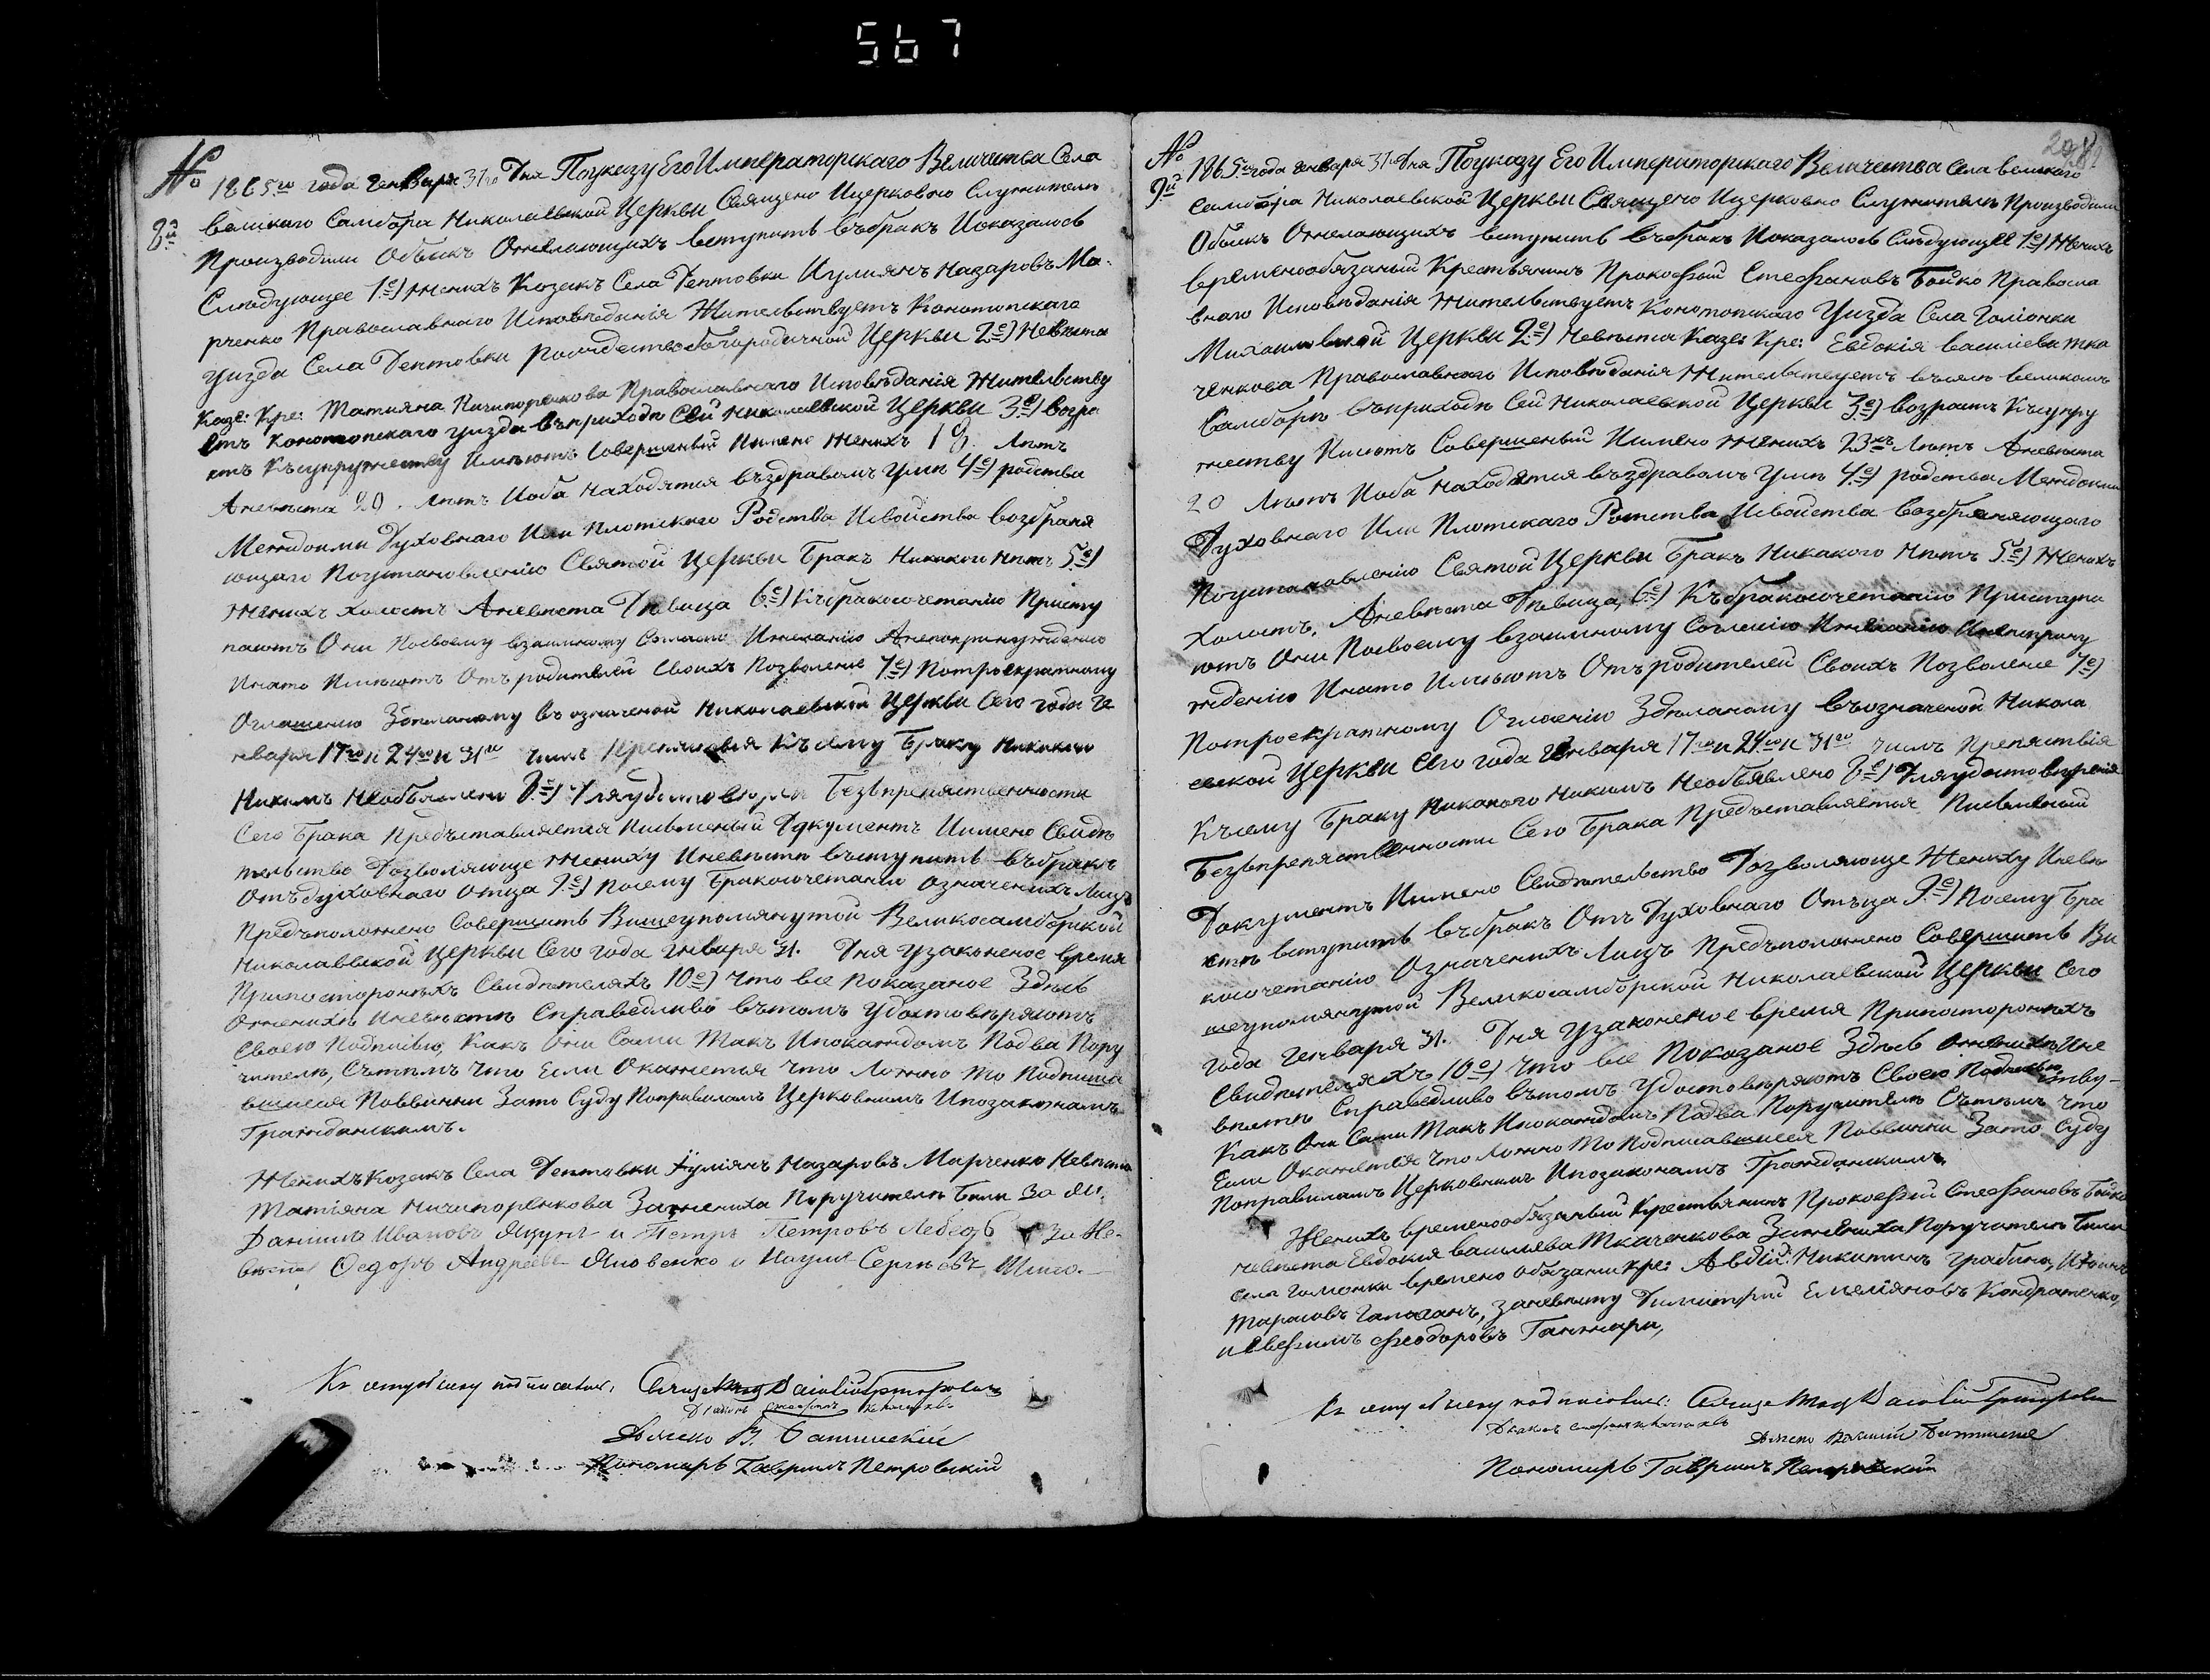 567
№ 8й
1865го года генваря 31го Дня Поуказу Его Императорскаго Величества Села
великаго Самбора Николаевской Церкви Священо Ицерковно Служители
Производили Обыскъ Ожелающихъ вступить въбракъ Ипоказалось
Следующее 1е) женихъ Козакъ Села Дептовки Иулиянъ Назаровъ Ма-
рченко Православнаго Исповѣданія Жительствуетъ Конотопскаго
уизда Села Дептовки рождествобогородичной Церкви 2е) Невѣста
Казе: Кре: Татияна Ничипоренкова Православнаго Исповѣданія Жительству
етъ Конотопскаго уизда въприходѣ Сей Николаевской Церкви 3е) возра
стъ Късупружеству Имѣютъ Совершеный Имено Женихъ 19. Лѣтъ
Аневѣста 20. лѣтъ Иоба Находятся въздравомъ Умѣ 4е) родства
Междоими Духовнаго Или Плотскаго Родства Исвойства возбраня
ющаго Поустановлению Святой Церкви Бракъ Никакого Нѣтъ 5е)
Женихъ холостъ Аневѣста Дѣвица 6е) Къбракосочетанію Присту
паютъ Они Посвоему взаимному Согласию Ижеланию Анепопринуждению
Инато Имѣютъ Отъ родителей Своихъ Позволение 7е) Потроекратному
Оглашению Зделаному въ означеной Николаевской Церкви Сего года Ге
нваря 17го и 24го и 31го числъ Препятствія Късему Браку Никакого
Никимъ Необъявлено 8е) Для удостовѣрения Безъпрепятственности
Сего Брака Предъставляется Писменый Документъ Имено Свидѣ
тельство Дозволяюще Жениху Иневѣсте въступить въбракъ
Отъ духовнаго отца 9е) Посему Бракосочетание Означенихъ Лицъ
Предъположено Совершить Вишеупомянутой Великосамборской
Николаевской Церкви Сего года генваря 31. Дня узаконеное время
Припостороннихъ Свидѣтеляхъ 10е) Что все Показаное Здѣсь
Оженихѣ Иневѣсте Справедливо вътомъ Удостовѣряютъ
Своею Подписью, Какъ Они Сами Такъ Ипокаждомъ Подва Пору
чителя, Сътѣмъ Что Если Окажется Что Ложно То Подписа
вшиеся Повинни Зато Суду Поправиламъ Церковнымъ Ипозаконамъ
Гражданскимъ.
Женихъ Козакъ Села Дептовки Іулиянъ Назаровъ Марченко Невѣста
Татіяна Ничипоренкова Зажениха Поручители Били
Даниилъ Ивановъ Яцунъ и Петръ Петровъ Лебедь За Не-
вѣсту Федоръ Андреевъ Яковенко и Наумъ Сергѣевъ
Къ сему обиску подписались: Священикъ Василій Григоровичъ
Дияконъ Стефанъ
Дьячокъ В. Батинскій
Пономарь Гавриилъ Петровский
№ 9й
1865го года генваря 31го Дня Поуказу Его Императорскаго Величества Села великаго
Самбора Николаевской Церкви Священо Ицерковно Служители Производили
Обыскъ Ожелающихъ вступить въбракъ Ипоказалось Следующее 1е) Женихъ
временообязаный Крестьянинъ Прокофий Стефановъ Бойко Правосла
внаго Исповѣданія Жительствуетъ Конотопскаго Уизда Села Голіонки
Михаиловской Церкви 2е) Невѣста Казе: Кре: Евдокія Василіева Тка
ченкова Православнаго Исповѣданія Жительствуетъ въселѣ Великомъ
Самборѣ въприходѣ Сей Николаевской Церкви 3е) возрастъ Късупру
жеству Имѣютъ Совершеный Имено Женихъ 23хъ Лѣтъ Аневѣста
20 Лѣтъ Иоба Находятся въздравомъ Умѣ 4е) родства Междоими
Духовнаго Или Плотскаго Ротства Исвойства Возбраняющаго
Поустановлению Святой Церкви Бракъ Никакого Нѣтъ 5е) Женихъ
Холостъ, Аневѣста Дѣвица, 6е) Къбракосочетанію Приступа
ютъ Они Посвоему взаимному Согласию Ижеланию Инепопрену
ждению Инато Имѣютъ Отъ родителей Своихъ Позволение 7е)
Потроекратному Огласенію Здѣланому въозначеной Никола
евской Церкви Сего года Генваря 17го и 24го и 31го числъ Препятствія
Късему Браку Никакого Никимъ Необъявлено 8е) Дляудостовѣрения
Безъпрепятственности Сего Брака Предъставляется Писменый
Документъ Имено Свидѣтельство Дозволяюще Жениху Иневѣ
сте вступить въбракъ Отъ Духовнаго Отъца 9е) Посему Бра
косочетанію Означенихъ Лицъ Предъположено Совершить Ви
шеупомянутой Великосамборской Николаевской Церкви Сего
года Генваря 31. Дня Узаконеное время Припостороннихъ
Свидѣтеляхъ 10е) Что все Показаное Здѣсь Оженихѣ Ине
вѣсте Справедливо вътомъ Удостовѣряютъ Своею Подписью
Какъ Они Сами Такъ Ипокаждомъ Подва Поручителя Сътѣмъ Что
Если Окажется Что Ложно То Подписавшиеся Повинни Зато Суду
Поправиламъ Церковнимъ Ипозаконамъ Гражданскимъ.
Женихъ временообязаный Крестьянинъ Прокофий Стефановъ Бойко
невѣста Евдокия Василіева Ткаченкова Зажениха Поручители Били
Села Голіонки времено обязани кре: Авдій: Никитинъ Грабина,
Тарасовъ Галаганъ, Заневѣсту Димитрий Емеліяновъ Кондратенко,
и Евфимъ Феодоровъ Ганжара,
Къ сему обиску подписались: Священикъ Василій Григорович
Дияконъ Стефанъ
Дьячокъ Василій Батинский
Пономарь Гавриилъ Петровский